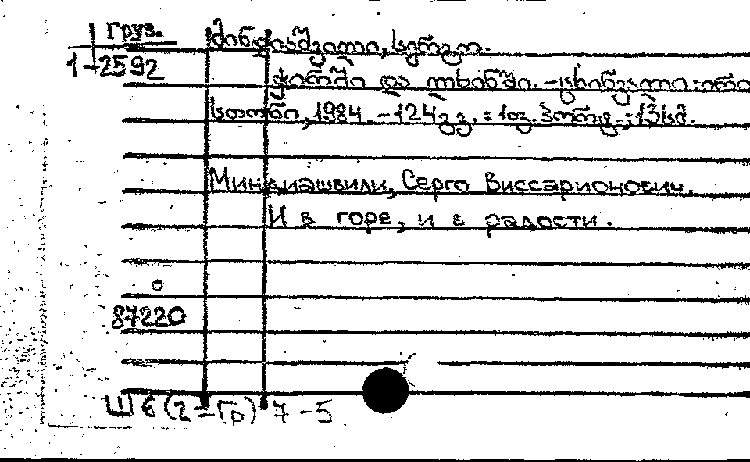 Груз.
1-2592
მინდიაშვილი, სერგო.
ჭირში და ლხინში. - ცხინვალი : ირი
სთონი, 1984. - 124გვ. : 1ც. პორტ. ; 13სმ.
Миндиашвили, Серго Виссарионович.
И в горе, и в радости.
87220
Ш6(2=Гр)7-5